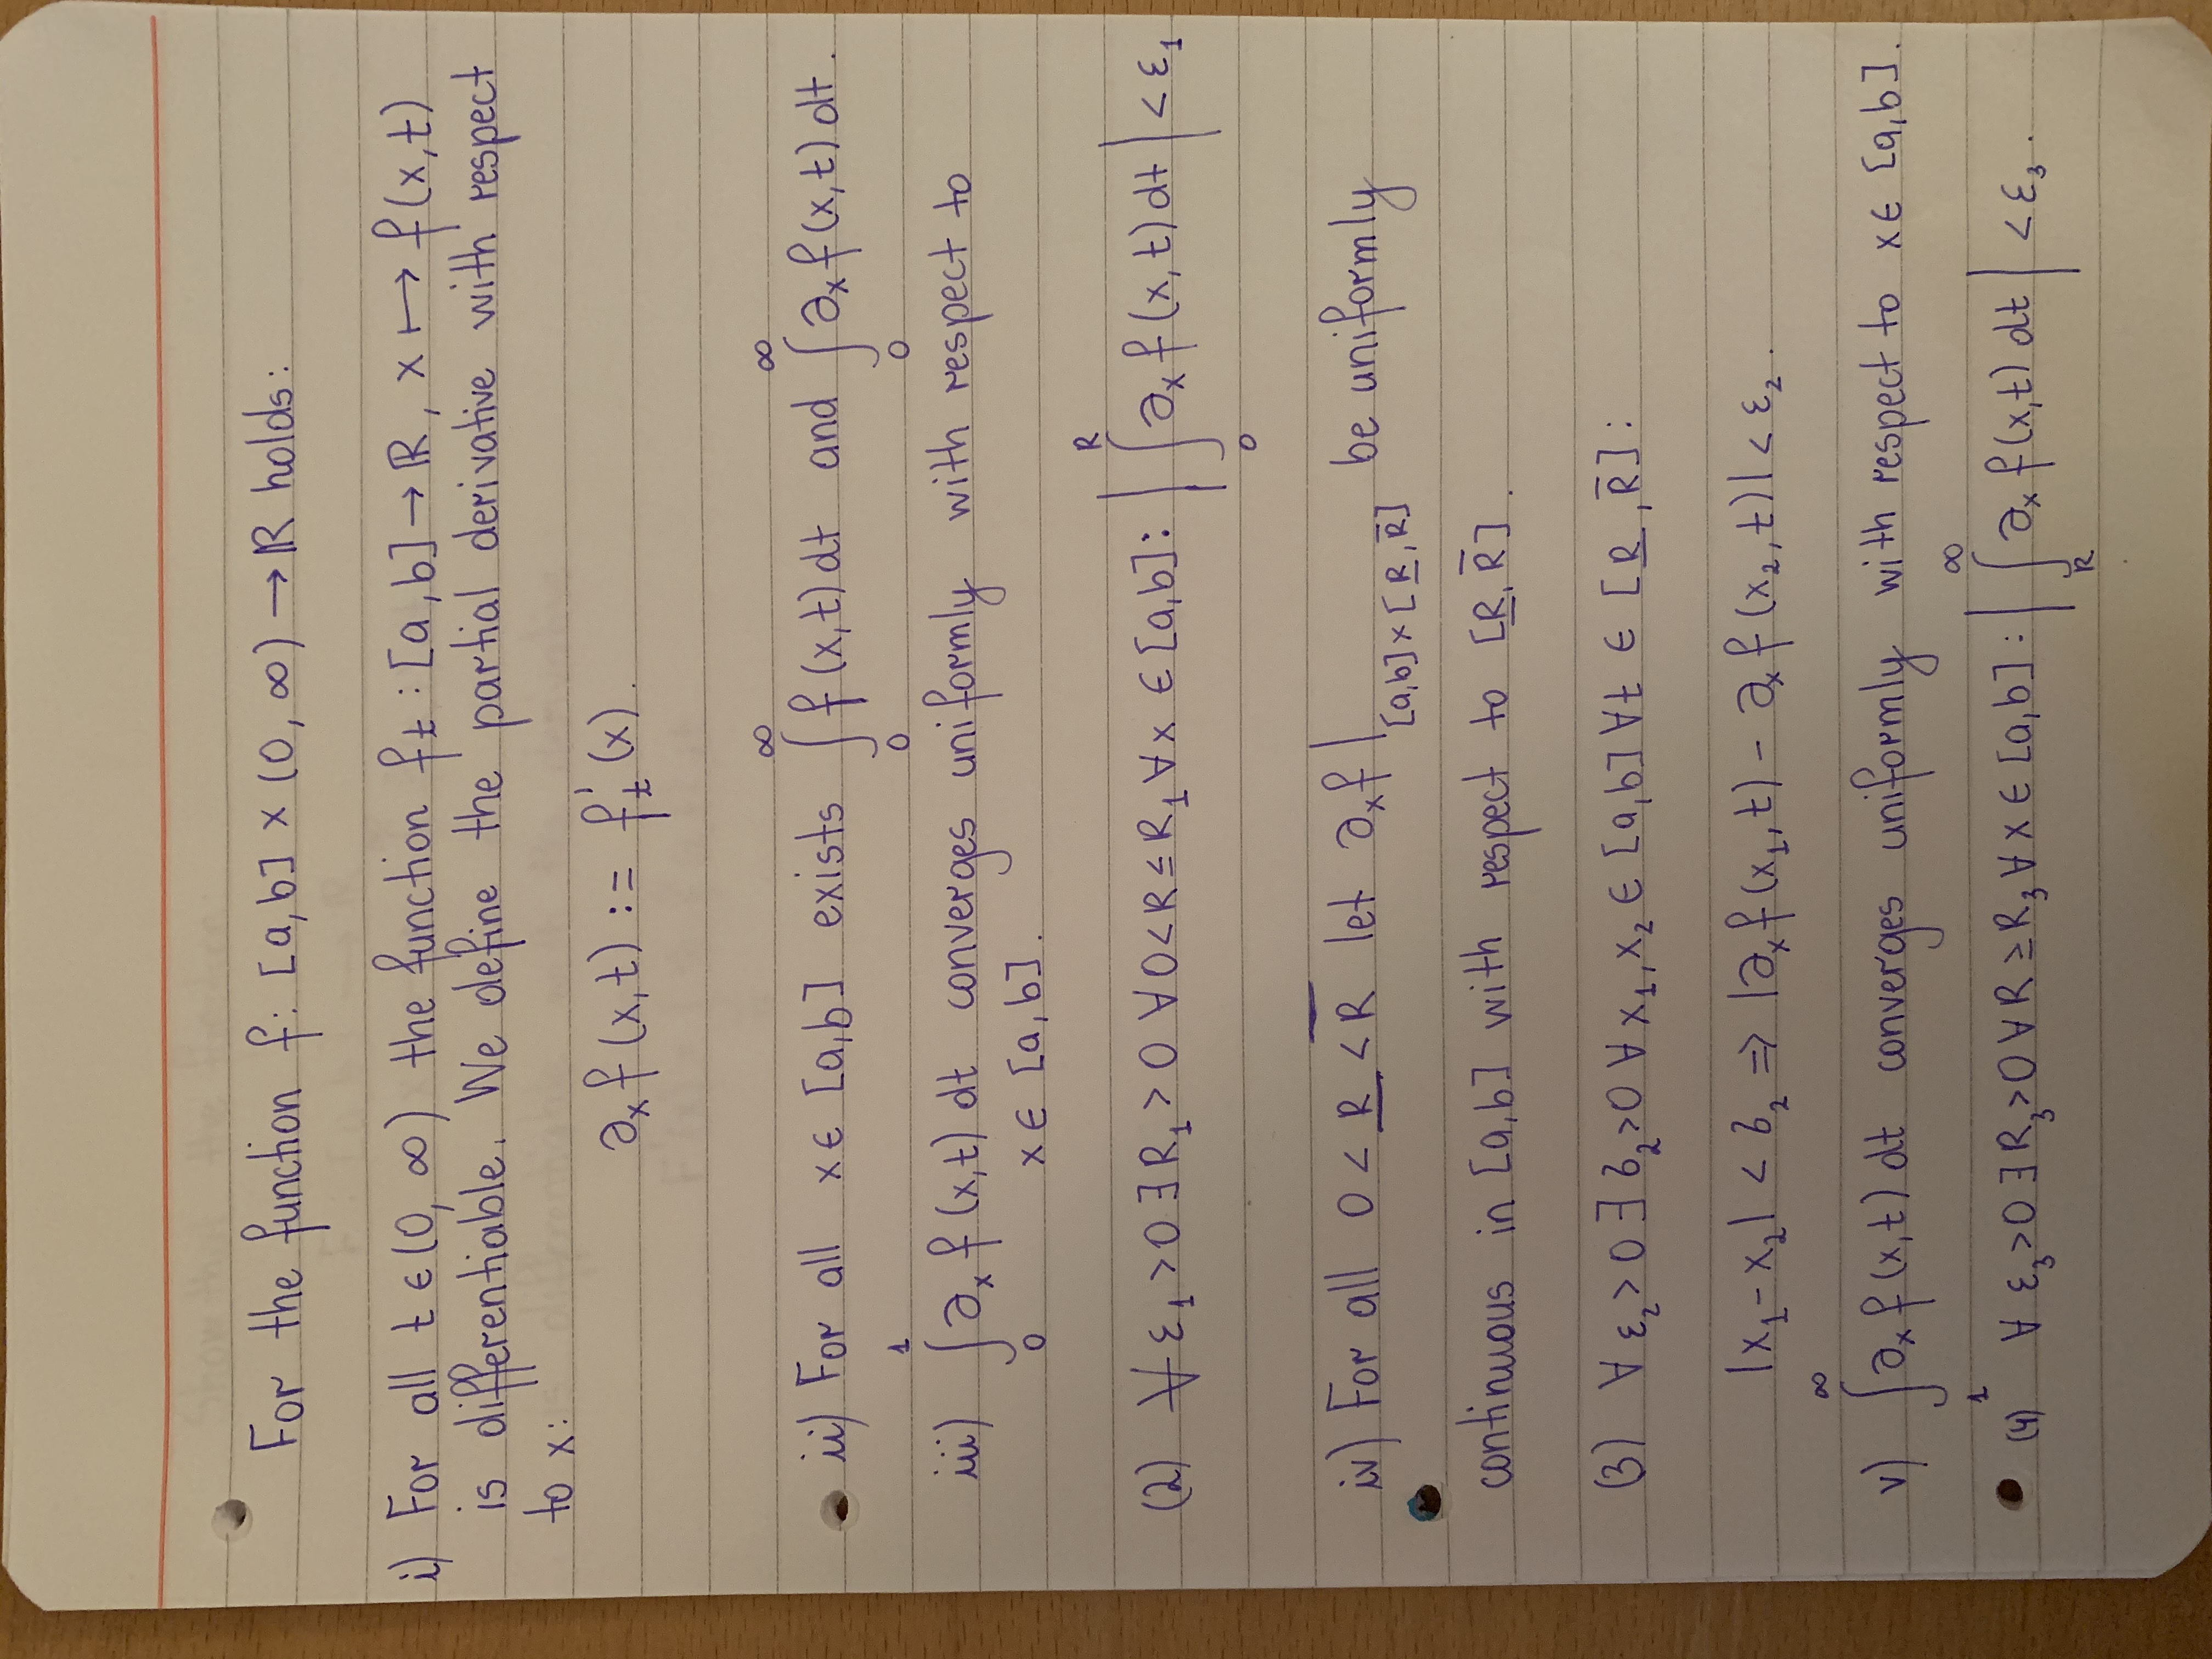 For the function f: [a,b] × (0, ∞) → ℝ holds:
i) For all t ∈ (0, ∞) the function f_t : [a,b] → ℝ, x ↦ f(x,t)
is differentiable. We define the partial derivative with respect
to x:
∂_x f(x,t) := f'_t(x).
ii) For all x ∈ [a,b] exists ∫_0^∞ f(x,t) dt and ∫_0^∞ ∂_x f(x,t) dt.
iii) ∫_0^1 ∂_x f(x,t) dt converges uniformly with respect to
x ∈ [a,b].
(2) ∀ ε_1 > 0 ∃ R_1 > 0 ∀ 0 < R ≤ R_1 ∀ x ∈ [a,b]: | ∫_0^R ∂_x f(x,t) dt | < ε_1
iv) For all 0 < R̲ < R̅ let ∂_x f |_{[a,b] × [R̲, R̅]} be uniformly
continuous in [a,b] with respect to [R̲, R̅].
(3) ∀ ε_2 > 0 ∃ δ_2 > 0 ∀ x_1, x_2 ∈ [a,b] ∀ t ∈ [R̲, R̅]:
|x_1 - x_2| < δ_2 ⇒ |∂_x f(x_1,t) - ∂_x f(x_2,t)| < ε_2.
v) ∫_1^∞ ∂_x f(x,t) dt converges uniformly with respect to x ∈ [a,b].
(4) ∀ ε_3 > 0 ∃ R_3 > 0 ∀ R ≥ R_3 ∀ x ∈ [a,b]: | ∫_R^∞ ∂_x f(x,t) dt | < ε_3.